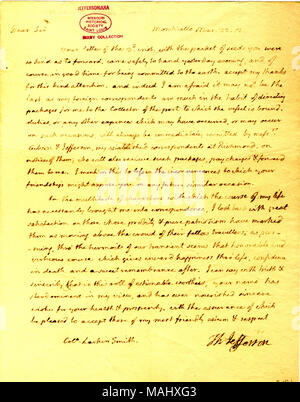 JEFFERSONIANA
MISSOURI
HISTORICAL
SOCIETY
BIXBY COLLECTION
Dear Sir Monticello
Your letter of the with the packet of seeds you were
so kind as to forward, came safely to hand yesterday evening, and of
course in good time for being committed to the earth. accept my thanks
for this kind attention. and indeed I am afraid it may not be the
last as my foreign correspondents are much in the habit of directing
packages for me to the Collector of the port to which the vessel is bound.
duties, or any other expences which may have occurred, or may occur
on such occasions will always be immediately remitted by mess.rs
Gibson & Jefferson, my established correspondents at Richmond, on
notice of them, who will also receive such packages, pay charges & forward
them to me. I mention this to lessen the inconveniences to which your
friendship might expose you on any future similar occasion.
In the multitude of with which the course of my life
has necessarily brought me into correspondence, I look back with great
satisfaction on those whose probity & pure patriotism have marked
them as moving above the crowd of their fellow travellers, as pur-
suing, thro' the turmoils of our transient scenes that honorable and
virtuous course which gives inward happiness thro' life, confidence
in death and a sweet remembrance after. I can say with truth &
sincerity that in the roll of estimable worthies, your name has
stood eminent in my view, and has ever nourished sincere
wishes for your health & prosperity, with the assurance of which
be pleased to accept those of my most friendly esteem & respect
Th: Jefferson
Col.o Larkin Smith.
alamy
Image ID: MAHXG3
www.alamy.com